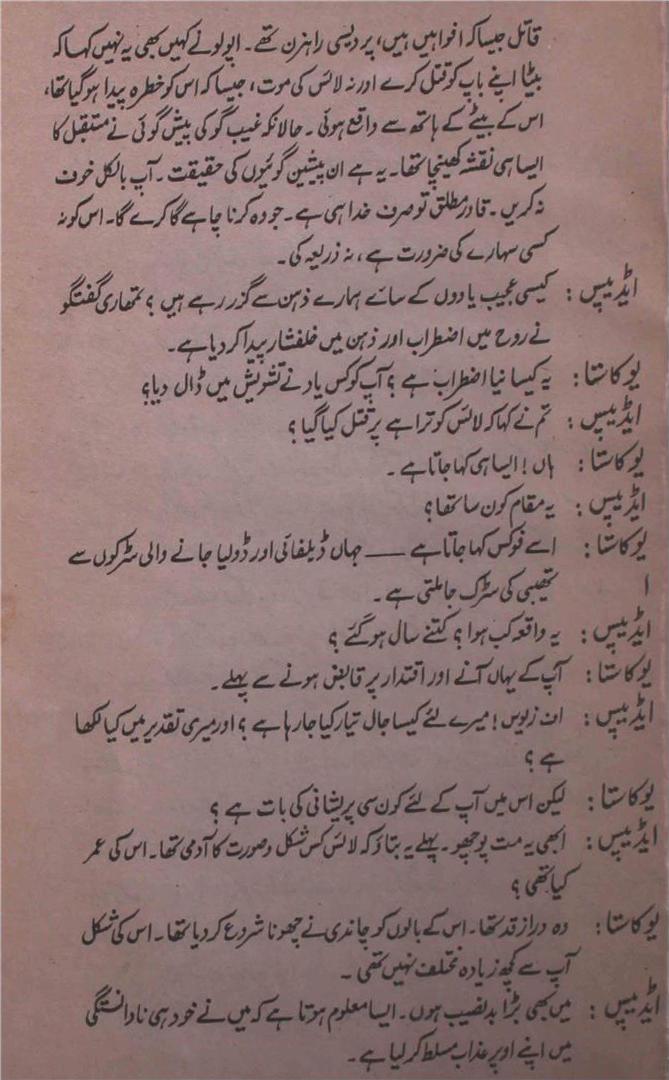 قاتل جیسا کہ افواہیں ہیں، پردیسی راہزن تھے۔ اپولو نے کہیں بھی یہ نہیں کہا کہ
بیٹا اپنے باپ کو قتل کرے اور نہ لائس کی موت، جیسا کہ اس کو خطرہ پیدا ہوگیا تھا،
اس کے بیٹے کے ہاتھ سے واقع ہوئی۔ حالانکہ غیب گو کی پیش گوئی نے مستقبل کا
ایسا ہی نقشہ کھینچا تھا۔ یہ ہے ان پیشین گوئیوں کی حقیقت۔ آپ بالکل خوف
نہ کریں۔ قادر مطلق تو صرف خدا ہی ہے۔ جو وہ کرنا چاہے گا کرے گا۔ اس کو نہ
کسی سہارے کی ضرورت ہے، نہ ذریعہ کی۔
ایڈیپس : کیسی عجیب یادوں کے سائے ہمارے ذہن سے گزر رہے ہیں؟ تمھاری گفتگو
نے روح میں اضطراب اور ذہن میں خلفشار پیدا کردیا ہے۔
یوکاستا : یہ کیسا نیا اضطراب ہے؟ آپ کو کس یاد نے تشویش میں ڈال دیا؟
ایڈیپس : تم نے کہا کہ لائس کو تراہے پر قتل کیا گیا؟
یوکاستا : ہاں! ایسا ہی کہا جاتا ہے۔
ایڈیپس : یہ مقام کون سا تھا؟
یوکاستا : اسے فوکس کہا جاتا ہے —— جہاں ڈیلفائی اور ڈولیا جانے والی سڑکوں سے
ا تھیبی کی سڑک جا ملتی ہے۔
ایڈیپس : یہ واقعہ کب ہوا؟ کتنے سال ہوگئے؟
یوکاستا : آپ کے یہاں آنے اور اقتدار پر قابض ہونے سے پہلے۔
ایڈیپس : اف زیوس! میرے لئے کیسا جال تیار کیا جارہا ہے؟ اور میری تقدیر میں کیا لکھا
ہے؟
یوکاستا : لیکن اس میں آپ کے لئے کون سی پریشانی کی بات ہے؟
ایڈیپس : ابھی یہ مت پوچھو۔ پہلے یہ بتاؤ کہ لائس کس شکل و صورت کا آدمی تھا۔ اس کی عمر
کیا تھی؟
یوکاستا : وہ دراز قد تھا۔ اس کے بالوں کو چاندی نے چھونا شروع کردیا تھا۔ اس کی شکل
آپ سے کچھ زیادہ مختلف نہیں تھی۔
ایڈیپس : میں بھی بڑا بدنصیب ہوں۔ ایسا معلوم ہوتا ہے کہ میں نے خود ہی نادانستگی
میں اپنے اوپر عذاب مسلط کرلیا ہے۔